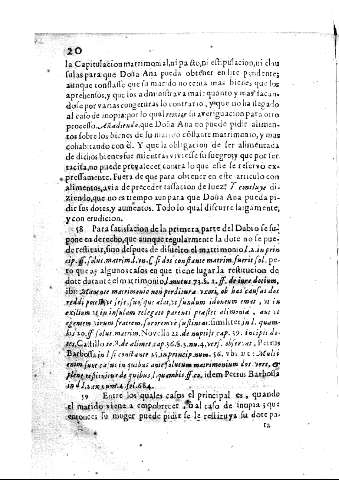 20
la Capitulacion matrimonial, ni pacto, ni estipulacion, ni clau
sulas para que Doña Ana pueda obtener en lite pendente;
aunque constasse que su marido no tenia mas bienes que los
aprehensos, y que los administrava mal: quanto y mas sacan-
dose por varias congeturas lo contrario, y que no ha llegado
al caso de inopia: por lo qual remite su averiguacion para otro
processo. Añadiendo, que Doña Ana no puede pidir alimen-
tos sobre los bienes de su marido cõstante matrimonio, y mas
cohabitando con èl. Y que la obligacion de ser alimentada
de dichos bienes fue mientras viviesse su suegro; y que por ser
tacita, no puede prevalecer contra lo que esse se reservò ex-
pressamente. Fuera de que para obtener en este articulo con
alimentos, avia de preceder tassacion de Juez. Y concluye di-
ziendo, que no es tiempo aun para que Doña Ana pueda pi-
dir sus dotes, y aumentos. Todo lo qual discurre largamente,
y con erudicion.
58 Para satisfacion de la primera parte del Dubio se su-
pone en derecho, que aunque regularmente la dote no se pue-
de restituir, sino despues de disuelto el matrimonio l. 2. in prin
cip. ff. solut. matrim. l. 30. C. si dos constante matrim. fuerit sol. pe-
ro que ay algunos casos en que tiene lugar la restitucion de
dote durante el matrimonio l. mutus 73. §. 1. ff. de iure dotium,
ibi: Manente matrimonio non perditura uxori, ob has causas dos
reddi potest: ut sese, suosque alat, ut fundum idoneum emat, ut in
exilium, ut in insulam relegato parenti præstet alimonia, aut ut
egentem virum, fratrem, sororemve sustineat. Similiter in l. quam-
bis 20. ff. solut. matrim. Novella 22. authentic. cap. 39. incipit de-
tes, Castillo to. 8. de aliment. cap. 36. §. 3. nu. 4. vers. observat, Petrus
Barbossa in l. si constante 25. in princip. num. 56. vbi: Et multi
enim sunt casus in quibus ante solutum matrimonium dos vere, &
plene restituitur de quibus l. quambis ff. eo, idem Petrus Barbossa
in d. l. 2. num. 4. fol. 684.
59 Entre los quales casos el principal es, quando
el marido viene a empobrecer, o al caso de inopia; que
entonces su muger puede pidir se le restituya su dote pa-
ra